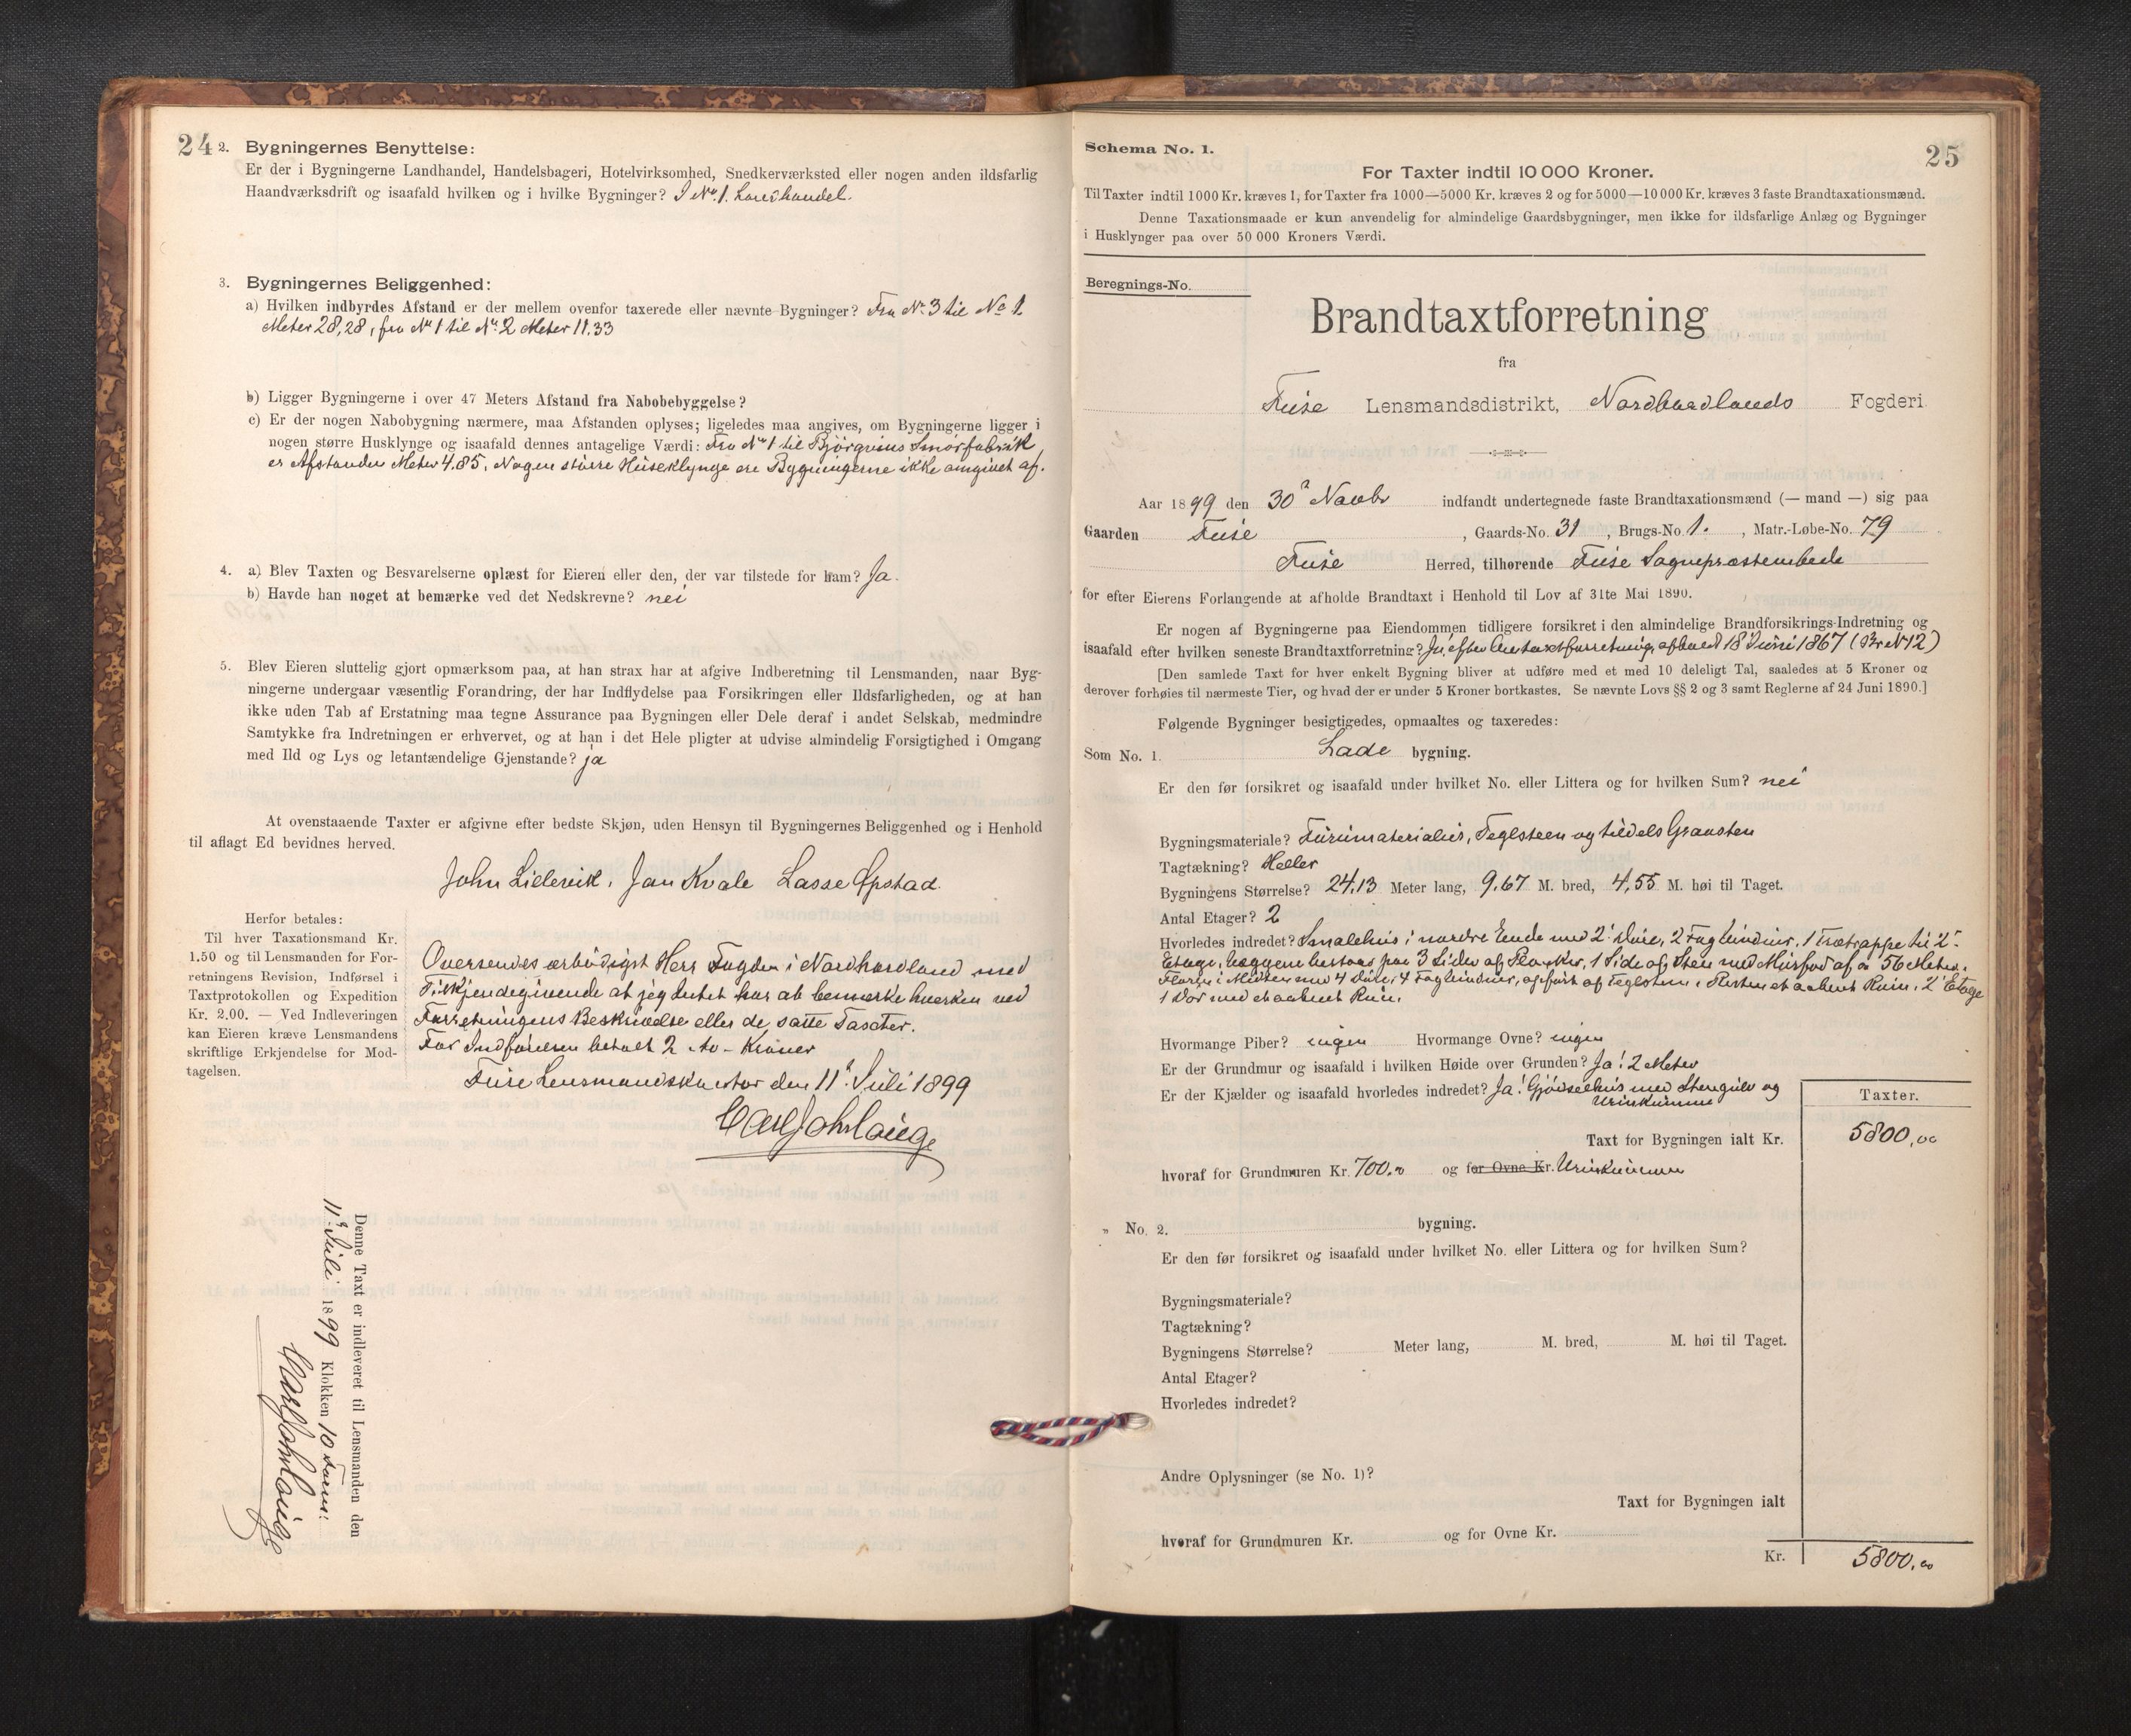 24
2. Bygningernes Benyttelse:
Er der i Bygningerne Landhandel, Handelsbageri, Hotelvirksomhed, Snedkerværksted eller nogen anden ildsfarlig
Haandværksdrift og isaafald hvilken og i hvilke Bygninger? I No. 1. Landhandel.
3. Bygningernes Beliggenhed:
a) Hvilken indbyrdes Afstand er der mellem ovenfor taxerede eller nævnte Bygninger? Fra No. 3 til No 1.
Meter 28,28, fra No 1 til No. 2 Meter 11.33
b) Ligger Bygningerne i over 47 Meters Afstand fra Nabobebyggelse?
c) Er der nogen Nabobygning nærmere, maa Afstanden oplyses; ligeledes maa angives, om Bygningerne ligger i
nogen større Husklynge og isaafald dennes antagelige Værdi: Fra No 1 til Bjørgvins Smørfabrik
er Afstanden Meter 4.85. Nogen større Huseklynge ere Bygningerne ikke omgivet af.
4. a) Blev Taxten og Besvarelserne oplæst for Eieren eller den, der var tilstede for ham? Ja.
b) Havde han noget at bemærke ved det Nedskrevne? nei
5. Blev Eieren sluttelig gjort opmærksom paa, at han strax har at afgive Indberetning til Lensmanden, naar Byg-
ningerne undergaar væsentlig Forandring, der har Indflydelse paa Forsikringen eller Ildsfarligheden, og at han
ikke uden Tab af Erstatning maa tegne Assurance paa Bygningen eller Dele deraf i andet Selskab, medmindre
Samtykke fra Indretningen er erhvervet, og at han i det Hele pligter at udvise almindelig Forsigtighed i Omgang
med Ild og Lys og letantændelige Gjenstande? ja
At ovenstaaende Taxter er afgivne efter bedste Skjøn, uden Hensyn til Bygningernes Beliggenhed og i Henhold
til aflagt Ed bevidnes herved.
John Lidervik. Jan Kvale Lasse Opstad.
Herfor betales:
Til hver Taxationsmand Kr.
1.50 og til Lensmanden for For-
retningens Revision, Indførsel i
Taxtprotokollen og Expedition
Kr. 2.00. — Ved Indleveringen
kan Eieren kræve Lensmandens
skriftlige Erkjendelse for Mod-
tagelsen.
Oversendes ærbødigst Herr Fogden i Nordhordland med
Tilkjendegivende at jeg Intet har at bemerke hverken ved
Forretningens Beskrivelse eller de satte Taxter.
For Indførelsen betalt 2 -to- Kroner
Fuse Lensmandskontor den 11' Juli 1899
Carl Johs Lauge
Denne Taxt er indleveret til Lensmanden den
11' Juli 1899 Klokken 10 Form:
Carl Johs Lauge
25
Schema No. 1.
For Taxter indtil 10 000 Kroner.
Til Taxter indtil 1000 Kr. kræves 1, for Taxter fra 1000—5000 Kr. kræves 2 og for 5000—10 000 Kr. kræves 3 faste Brandtaxationsmænd.
Denne Taxationsmaade er kun anvendelig for almindelige Gaardsbygninger, men ikke for ildsfarlige Anlæg og Bygninger
i Husklynger paa over 50 000 Kroners Værdi.
Beregnings-No.
Brandtaxtforretning
fra
Fuse Lensmandsdistrikt, Nordhordlands Fogderi.
Aar 1899 den 30' Novbr indfandt undertegnede faste Brandtaxationsmænd (— mand —) sig paa
Gaarden Fuse , Gaards-No. 31 , Brugs-No 1. , Matr.-Løbe-No. 79
Fuse Herred, tilhørende Fuse Sognepræstembede
for efter Eierens Forlangende at afholde Brandtaxt i Henhold til Lov af 31te Mai 1890.
Er nogen af Bygningerne paa Eiendommen tidligere forsikret i den almindelige Brandforsikrings-Indretning og
isaafald efter hvilken seneste Brandtaxtforretning? Ja, efter Omtaxtforretning afholdt 18' Juni 1867 (Br N 12)
[Den samlede Taxt for hver enkelt Bygning bliver at udføre med et med 10 deleligt Tal, saaledes at 5 Kroner og
derover forhøies til nærmeste Tier, og hvad der er under 5 Kroner bortkastes. Se nævnte Lovs §§ 2 og 3 samt Reglerne af 24 Juni 1890.]
Følgende Bygninger besigtigedes, opmaaltes og taxeredes:
Som No. 1. Lade bygning.
Er den før forsikret og isaafald under hvilket No. eller Littera og for hvilken Sum? nei
Bygningsmateriale? Furumaterialier, Teglsteen og tildels Graasten
Tagtækning? Heller
Bygningens Størrelse? 24,13 Meter lang, 9,67 M. bred, 4,55 M. høi til Taget.
Antal Etager? 2
Hvorledes indredet? Smalehus i nordre Ende med 2' Døre, 2 Fag Vinduer, 1 Trætrappe til 2'
Etage, Væggene bestaar paa 3 Sider af Planker, 1 Side af Sten med Murfod af 56 Meter.
Flor i Midten med 4 Døre, 4 Fag Vinduer, opført af Teglsten. Resten et aabent Rum. 2' Etage
1 Dør med et aabent Rum.
Hvormange Piber? ingen Hvormange Ovne? ingen
Er der Grundmur og isaafald i hvilken Høide over Grunden? Ja! 2 Meter
Er der Kjælder og isaafald hvorledes indredet? Ja! Gjødselhus med Stengulv og
Urinkumme
Taxter.
Taxt for Bygningen ialt Kr. 5800,00
hvoraf for Grundmuren Kr. 700.00 og for Ovne Kr. Urinkummen
„ No. 2. bygning.
Er den før forsikret og isaafald under hvilket No. eller Littera og for hvilken Sum?
Bygningsmateriale?
Tagtækning?
Bygningens Størrelse? Meter lang, M. bred, M. høi til Taget.
Antal Etager?
Hvorledes indredet?
Andre Oplysninger (se No. 1)?
Taxt for Bygningen ialt
hvoraf for Grundmuren Kr. og for Ovne Kr.
Kr. 5800.00